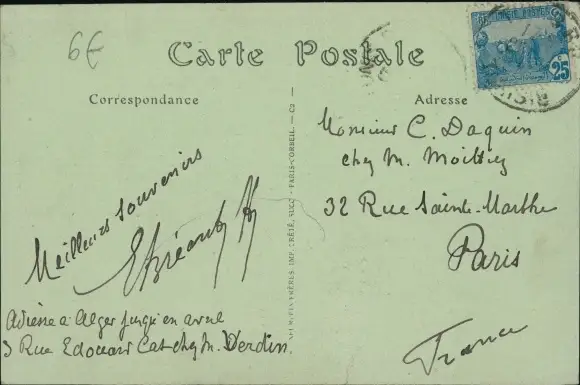 6€
Carte Postale
Correspondance
Adresse
25
Monsieur C. Daquin
chez M.
32 Rue Sainte-Marthe
Paris
France
Meilleurs souvenirs
Adresse à Alger jusqu'en avril
3 Rue Edouard Cat chez M. Verdin
FRÈRES, IMP. CRÉTÉ, SUCC. PARIS-CORBEIL. — C9